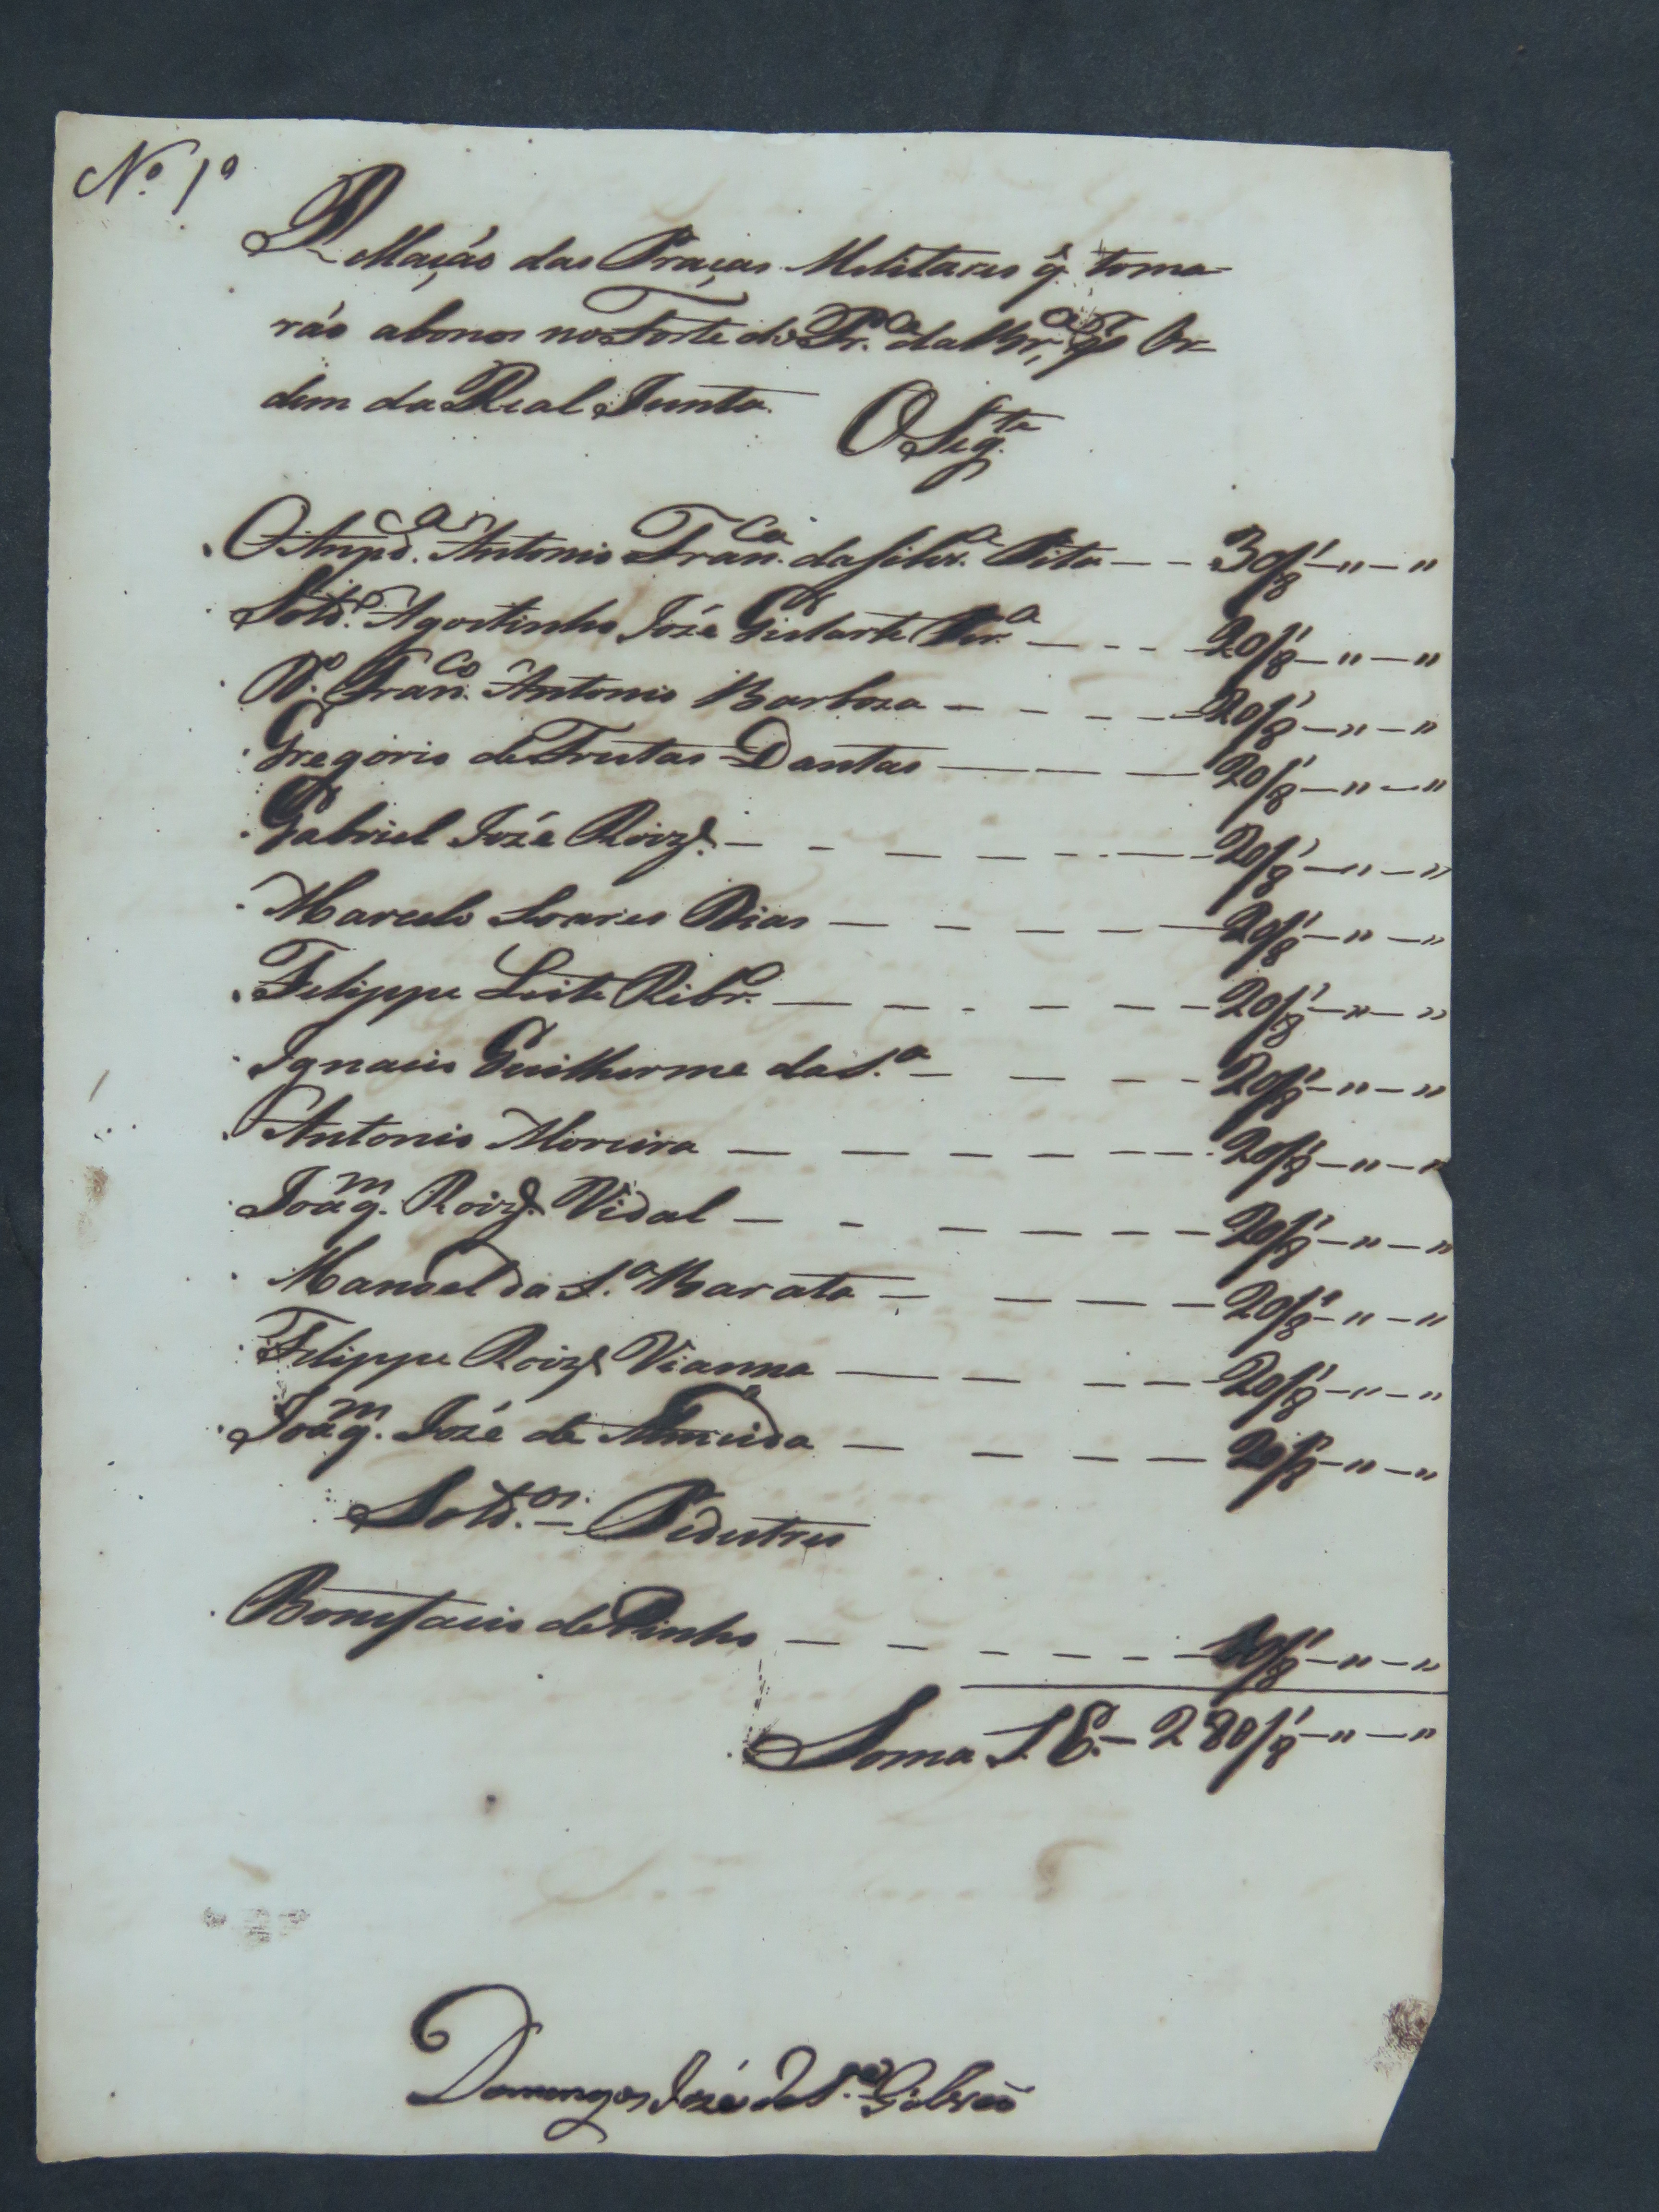 Nº 1º
Rellação das Praças Melitares q̃. toma-
rão abonos no Forte do Pr.e da Br.a, p.r Or-
dem da Real Junta.
O Seg.te
O Anspd.ª Antonio Fran.co da Silv.ª Pita — — 30/8.ˢ — " — "
Sold.º Agostinho José Gularte Per.ª — — — 20/8.ˢ — " — "
D.º Fran.co Antonio Barboza — — — — 20/8.ˢ — " — "
Gregorio de Freitas Dantas — — — 20/8.ˢ — " — "
Gabriel José Roiz. — — — — — — 20/8.ˢ — " — "
Marcelo Soares Dias — — — — — 20/8.ˢ — " — "
Felippe Leite Ribr.º — — — — — — 20/8.ˢ — " — "
Ignacio Guilherme da S.ª — — — — 20/8.ˢ — " — "
Antonio Moreira — — — — — — 20/8.ˢ — " — "
Joaq.m Roiz. Vidal — — — — — — 20/8.ˢ — " — "
Manoel da S.ª Barata — — — — 20/8.ˢ — " — "
Felippe Roiz Vianna — — — — — 20/8.ˢ — " — "
Joaq.m José de Almeida — — — — 20/8.ˢ — " — "
Sold.os — Pedestres
Bonifacio de Pinho — — — — — — 10/8.ˢ — " — "
Soma S. E. — 280/8.ˢ — " — "
Domingos José da S.ª